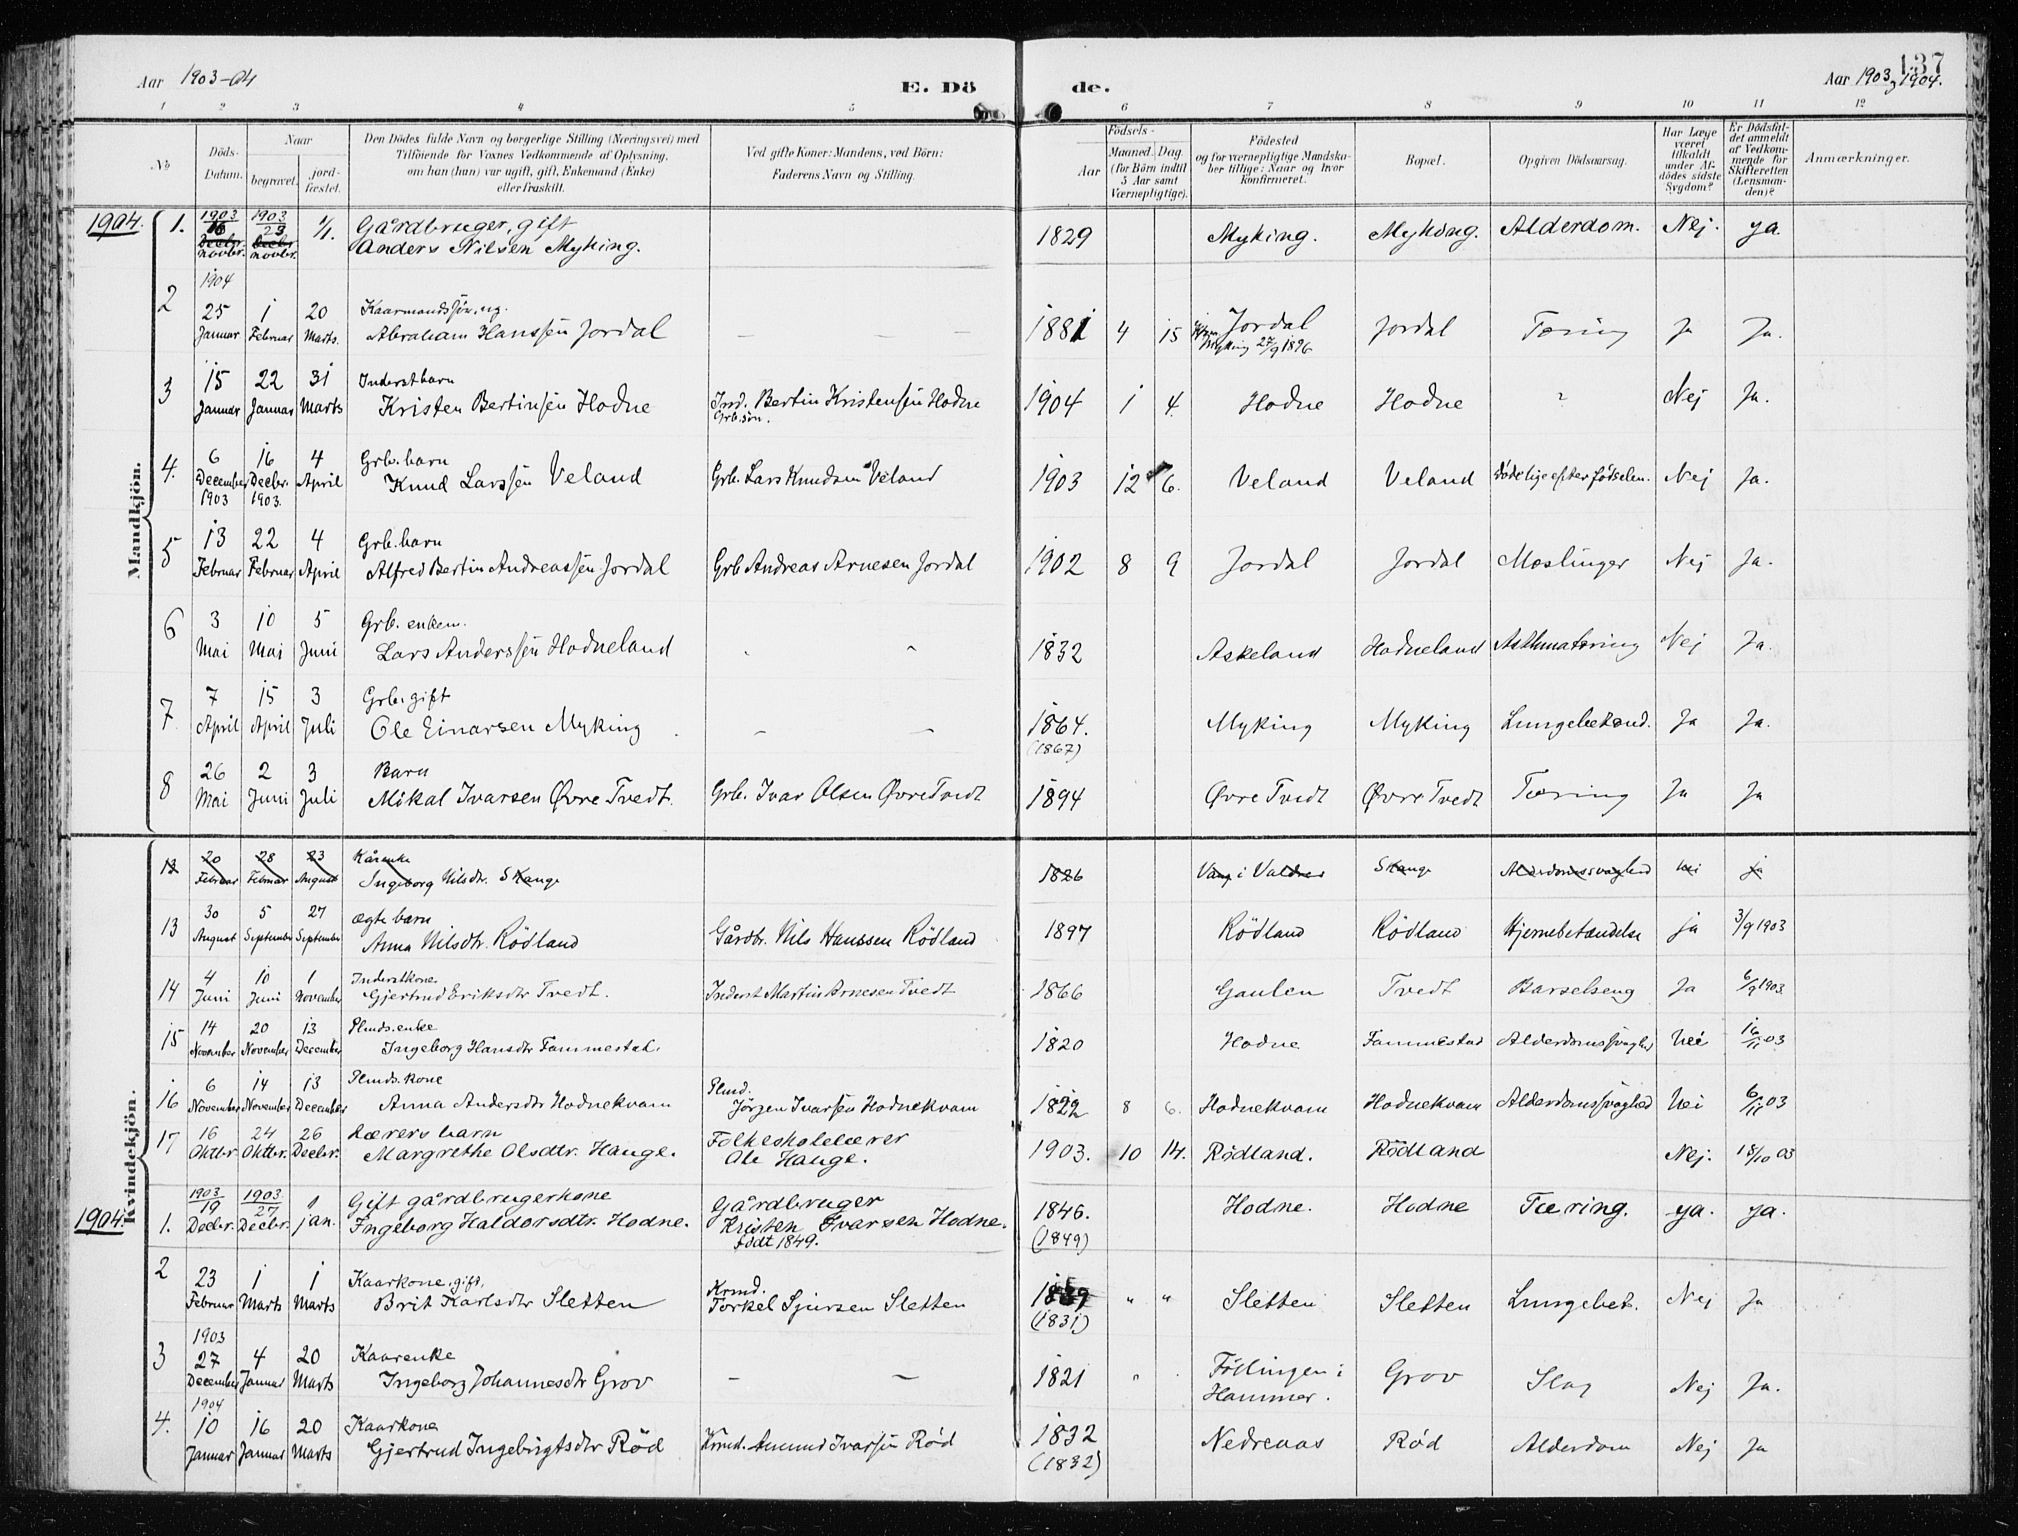 137
Aar 1903-04 E. Dö de. Aar 1903, 1904.
1 2 3 4 5 6 7 8 9 10 11 12
No
Döds-Datum.
Naar
begravet.
jord-fæstet.
Den Dödes fulde Navn og borgerlige Stilling (Næringsvei) med
Tilföiende for Voxnes Vedkommende af Oplysning,
om han (hun) var ugift, gift, Enkemand (Enke)
eller fraskilt.
Ved gifte Koner: Mandens, ved Börn:
Faderens Navn og Stilling.
Födsels-
Aar
Maaned. Dag.
(for Börn indtil
5 Aar samt
Værnepligtige).
Födested
og for værnepligtige Mandska-
ber tillige: Naar og hvor
konfirmeret.
Bopæl.
Opgiven Dödsaarsag.
Har Læge
været
tilkaldt
under Af-
dödes sidste
Sygdom?
Er Dödsfal-
det anmeldt
af Vedkom-
mende for
Skifteretten
(Lensman-
den)?
Anmærkninger.
Mandkjön.
1904. 1. 1903 16 Decbr. novbr. 1903 23 Decbr. novbr. 1/1. Gårdbruger, gift
Anders Nilsen Myking. 1829 Myking. Myking. Alderdom. Nej. ja.
2 1904
25 Januar 1 Februar 20 Marts. Kaarmandssön, ug.
Abraham Hanssen Jordal — — — 1881 4 15 Jordal
Myking 27/9 1896 Jordal Tæring Ja Ja.
3 15 Januar 22 Januar 31 Marts Inderstbarn
Kristen Bertinsen Hodne Ind. Bertin Kristensen Hodne
Grb.sön. 1904 1 4. Hodne Hodne ? Nej Ja.
4. 6 December 1903 16 Decbr. 1903. 4 April Grb. barn
Knud Larssen Veland Grb. Lars Knudsen Veland 1903 12 6. Veland Veland Döde lige efter födselen. Nej Ja.
5 13 Februar 22 Februar 4 April Grb. barn
Alfred Bertin Andreassen Jordal Grb Andreas Arnesen Jordal 1902 8 9 Jordal Jordal Meslinger Nej Ja.
6 3 Mai 10 Mai 5 Juni Grb. enkem.
Lars Anderssen Hodneland 1832 Askeland Hodneland Asthmatæring Nej Ja.
7. 7 April 15 April 3 Juli Grb. gift
Ole Einarsen Myking — — 1864. (1867) Myking Myking Lungebetænd. Ja Ja.
8 26 Mai 2 Juni 3 Juli Barn
Mikal Ivarsen Øvre Tvedt. Grb. Ivar Olsen Øvre Tvedt 1894 Øvre Tvedt Øvre Tvedt Tæring Ja Ja
Kvindekjön.
12 20 Februar 28 Februar 23 August Kårenke
Ingeborg Nilsdtr. Skauge 1826 Vang i Valdres Skauge Alderdomssvaghed nei ja
13 30 August 5 September 27 September ægte barn
Anna Nilsdtr. Rödland Gårdbr. Nils Hanssen Rödland 1897 Rödland Rödland Hjernebetændelse ja 3/9 1903
14 4 Juni 10 Juni 1 November Inderstkone
Gjertrud Eriksdtr Tvedt. Inderst Martin Arnesen Tvedt 1866 Gaulen Tvedt Barselseng Ja 6/9 1903
15 14 November 20 November 13 December Plmds. enke
Ingeborg Hansdtr Fammestad. 1820 Hodne Fammestad Alderdomssvaghed Nei 16/11 03
16 6 November 14 November 13 December Plmds. kone
Anna Andersdtr Hodnekvam Plmd.
Jörgen Ivarssen Hodnekvam 1822 8 6. Hodnekvam Hodnekvam Alderdomssvaghed Nei 6/11 03
17 16 Oktbr. 24 Oktbr. 26 Decbr. Lærers barn
Margrethe Olsdtr. Hauge. Folkeskolelærer
Ole Hauge. 1903. 10 14. Rödland. Rödland Nej. 18/10 03
1904. 1. 1903 19 Decbr. 1903. 27 Decbr. 1 jan. Gift gårdbrugerkone
Ingeborg Haldorsdtr. Hodne. Gårdbruger
Kristen Ivarsen Hodne.
Födt 1849. 1846. (1849) Hodne. Hodne Tæring. ja. ja.
2 23 Februar 1 Marts 1 Marts Kaarkone, gift,
Brit Karlsdtr Sletten Krmd.
Torkel Sjursen Sletten (1831) " " Sletten Sletten Lungebet. Nej Ja
3 1903
27 December 4 Januar 20 Marts Kaarenke
Ingeborg Johannesdtr Grov — — 1821 Föllingen i
Hammer. Grov Slag Nej Ja.
4. 1904
10 Januar 16 Januar 20 Marts Kaarkone
Gjertrud Ingebrigtsdtr Röd Krmd. Amund Ivarssen Röd 1832 (1832) Nedreaas Röd Alderdom Nej Ja